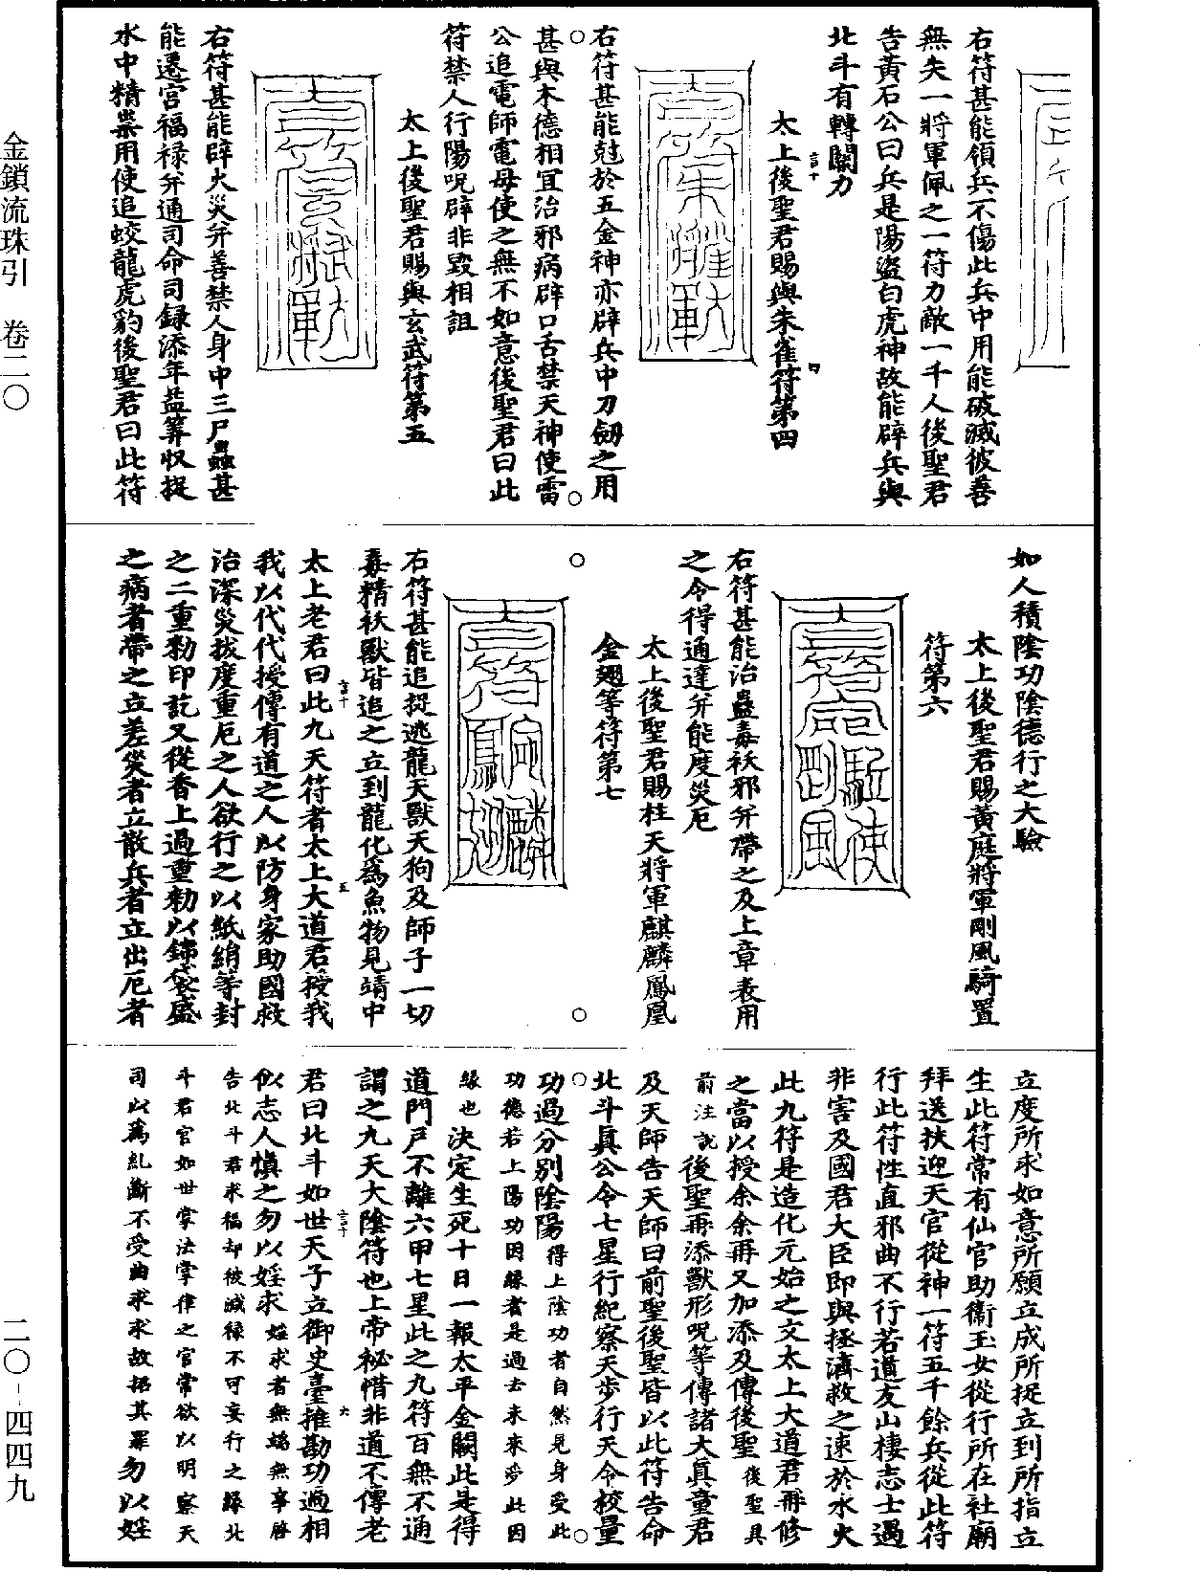 右符甚能領兵不傷此兵中用能破滅彼善
無失一將軍佩之一符力敵一千人後聖君
告黃石公曰兵是陽盜白虎神故能辟兵與
北斗有轉關力
太上後聖君賜與朱雀符第四
右符甚能尅於五金神亦辟兵中刀劒之用
甚與木德相宜治邪病辟口舌禁天神使雷
公追電師電母使之無不如意後聖君曰此
符禁人行陽呪辟非毀相詛
太上後聖君賜與玄武符第五
右符甚能辟火災并善禁人身中三尸蟲甚
能遷官福祿并通司命司錄添年益筭收捉
水中精祟用使追蛟龍虎豹後聖君曰此符
如人積陰功陰德行之大驗
太上後聖君賜黃庭將軍剛風騎置
符第六
右符甚能治蠱毒袄邪并帶之及上章表用
之令得通達并能度災厄
太上後聖君賜柱天將軍麒麟鳳凰
金翅等符第七
右符甚能追捉逃龍天獸天狗及師子一切
毒精袄獸皆追之立到龍化為魚物見靖中
太上老君曰此九天符者太上大道君授我
我以代代授傳有道之人以防身家助國救
治深災拔度重厄之人欲行之以紙絹等封
之二重勑印訖又從香上過重勑以錦袋盛
之病者帶之立差災者立散兵者立出厄者
立度所求如意所願立成所捉立到所指立
生此符常有仙官助衞玉女從行所在社廟
拜送扶迎天官從神一符五千餘兵從此符
行此符性直邪曲不行若道友山棲志士過
非害及國君大臣即與拯濟救之速於水火
此九符是造化元始之文太上大道君再修
之當以授余余再又加添及傳後聖後聖具
前注說後聖再添獸形呪等傳諸大真童君
及天師告天師曰前聖後聖皆以此符告命
北斗真公令七星行紀察天步行天令校量
功過分別陰陽得上陰功者自然見身受此
功德若上陽功因緣者是過去未來步此因
緣也決定生死十日一報太平金闕此是得
道門戶不離六甲七星此之九符百無不通
謂之九天大陰符也上帝祕惜非道不傳老
君曰北斗如世天子立御史臺推勘功過相
似志人慎之勿以婬求婬求者無端無事啓
告北斗君求福却被減祿不可妄行之緣北
斗君官如世掌法掌律之官常欲以明察天
司以為糺斷不受曲求求故招其罪勿以婬
金鎖流珠引 卷二〇
二〇-四四九